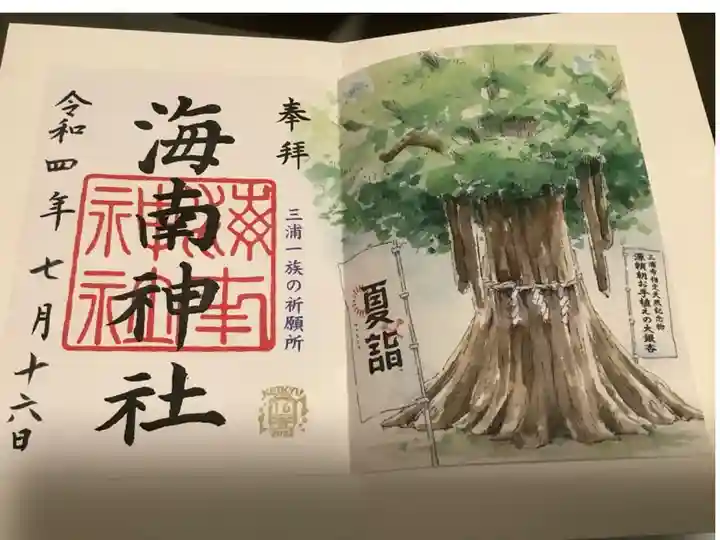 奉拝
三浦一族の祈願所
海南神社
令和四年七月十六日
KEIKYU
三浦市指定天然記念物
源頼朝お手植えの大銀杏
夏詣